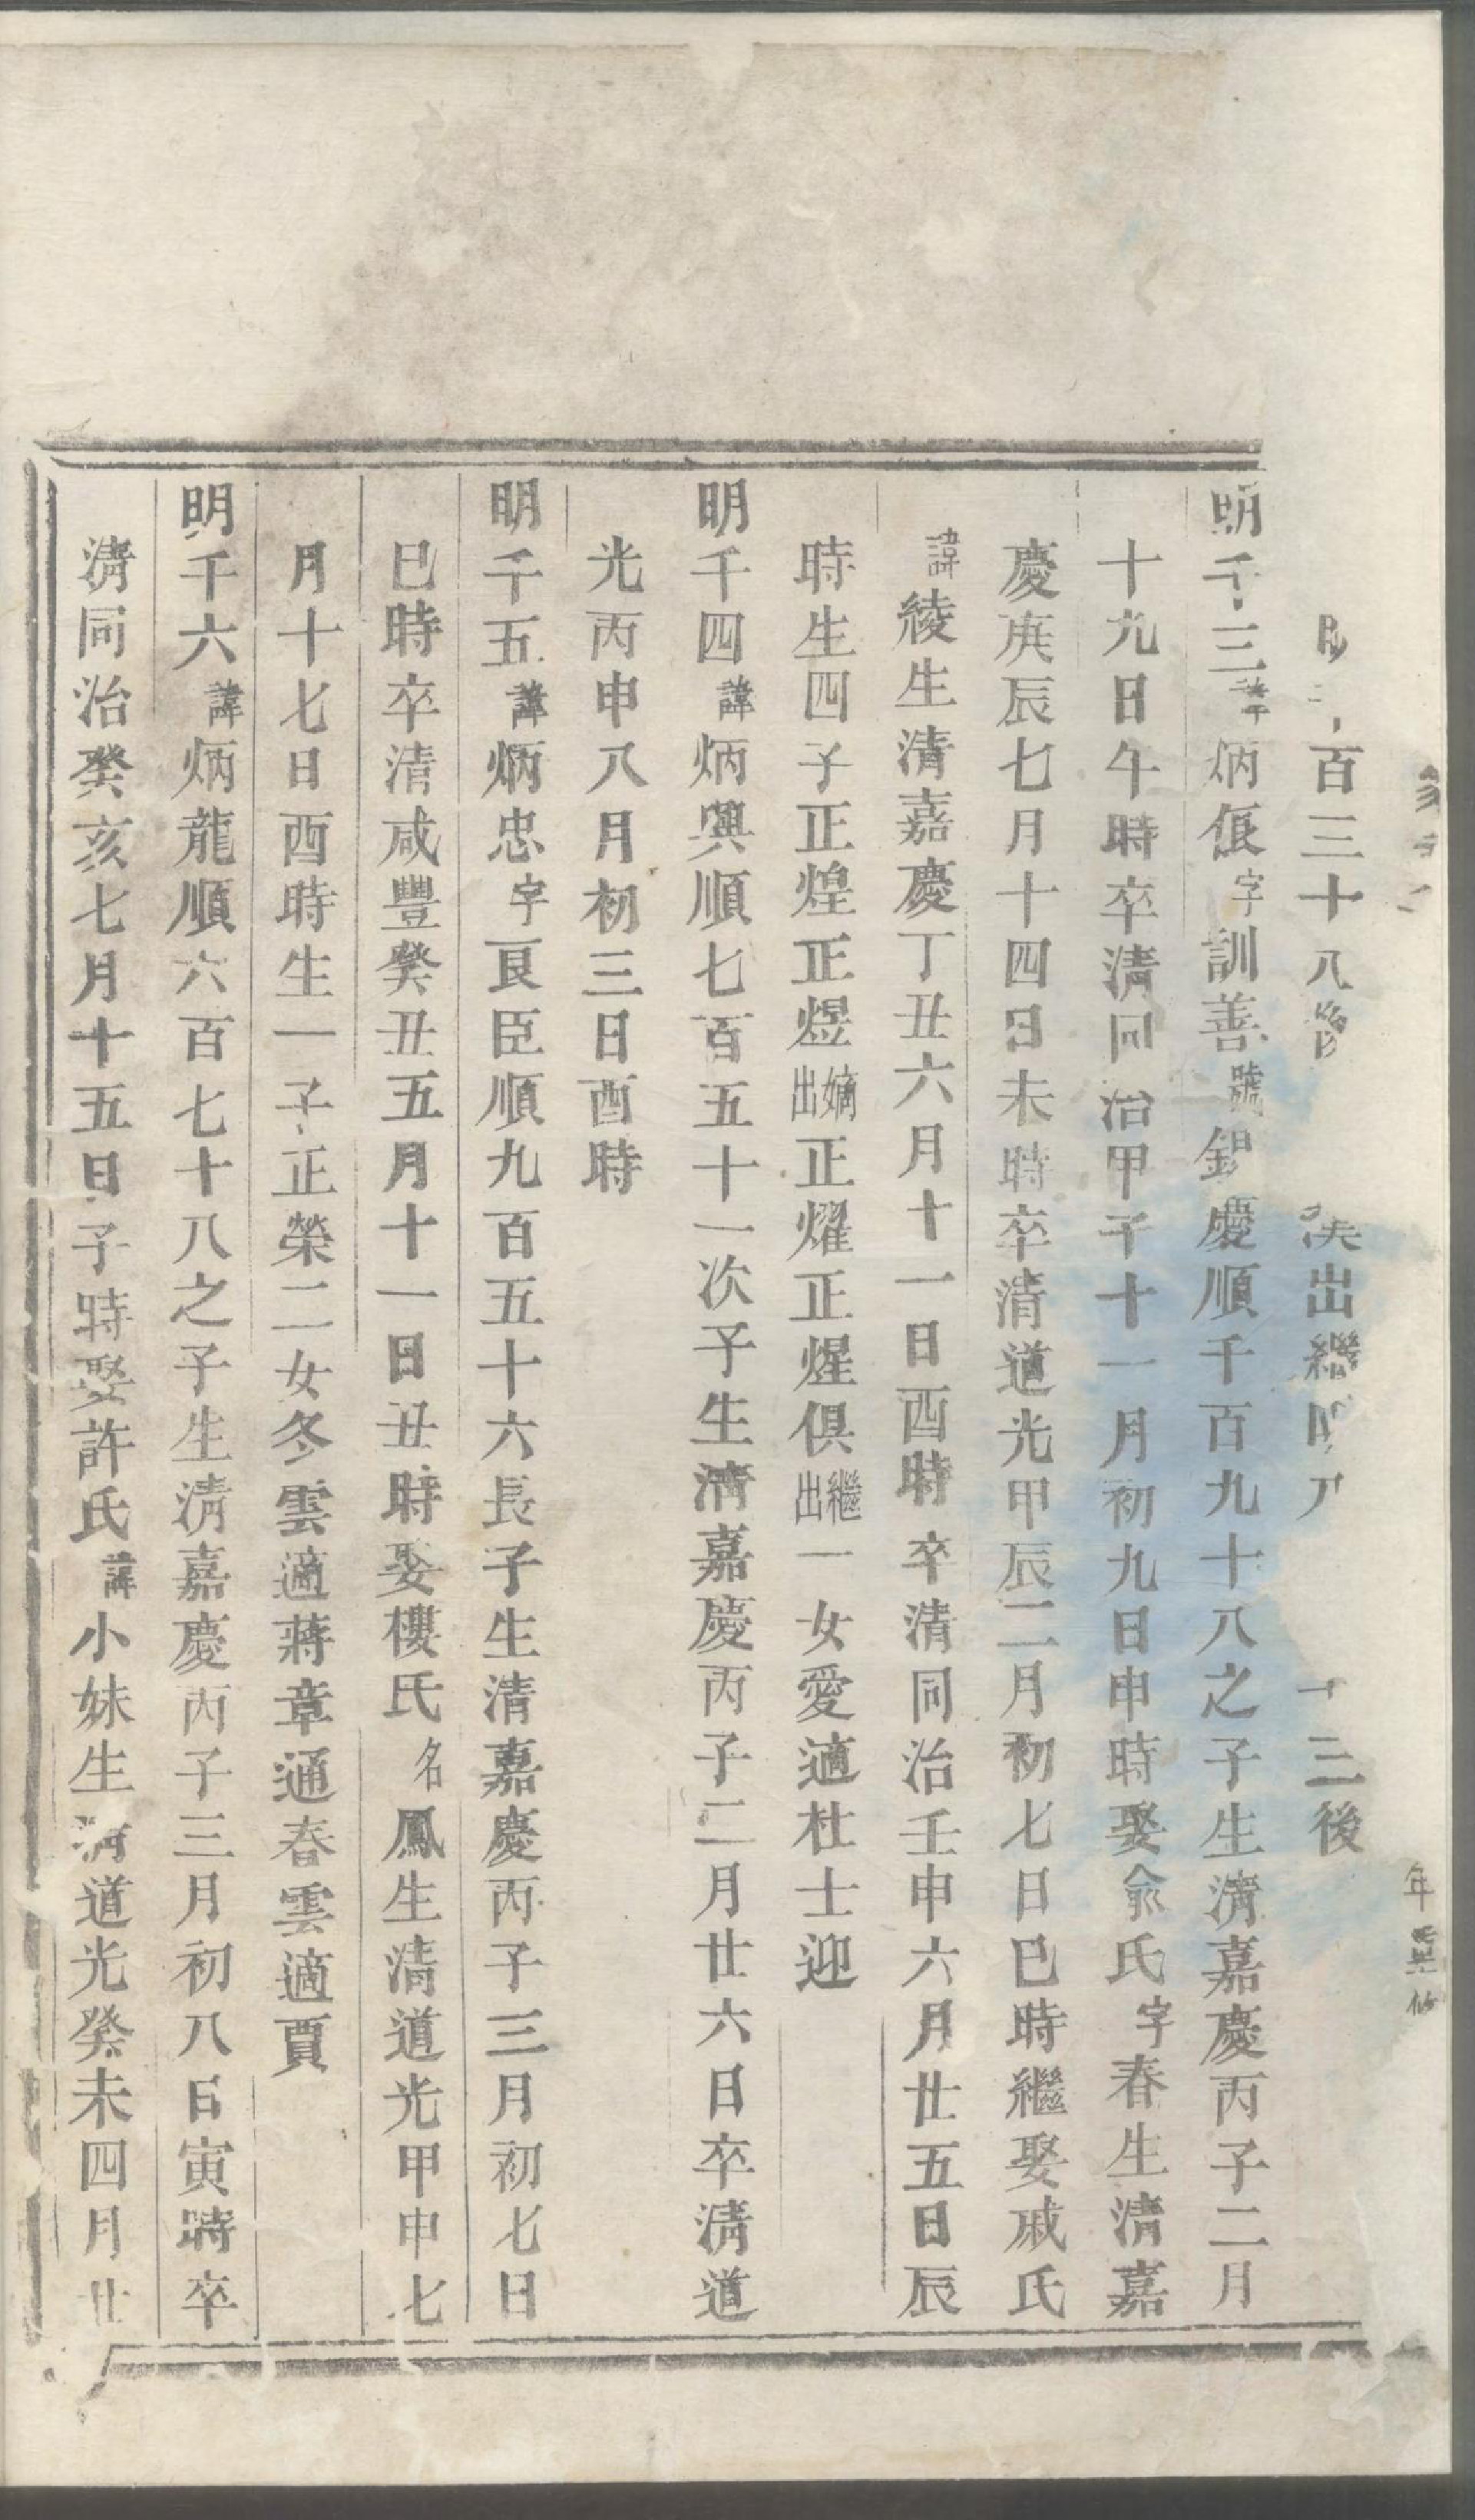 百三十八 出繼 三後
明千三諱炳俍字訓善號錦慶順千百九十八之子生淸嘉慶丙子二月
十九日午時卒淸同治甲子十一月初九日申時娶俞氏字春生淸嘉
慶庚辰七月十四日未時卒淸道光甲辰二月初七日巳時繼娶戚氏
諱綾生淸嘉慶丁丑六月十一日酉時卒淸同治壬申六月廿五日辰
時生四子正煌正煜嫡出正燿正煋俱繼出一女愛適杜士迎
明千四諱炳興順七百五十一次子生淸嘉慶丙子二月廿六日卒淸道
光丙申八月初三日酉時
明千五諱炳忠字良臣順九百五十六長子生淸嘉慶丙子三月初七日
巳時卒淸咸豐癸丑五月十一日丑時娶樓氏名鳳生淸道光甲申七
月十七日酉時生一子正榮二女冬雲適蔣章通春雲適賈
明千六諱炳龍順六百七十八之子生淸嘉慶丙子三月初八日寅時卒
淸同治癸亥七月十五日子時娶許氏諱小妹生淸道光癸未四月廿